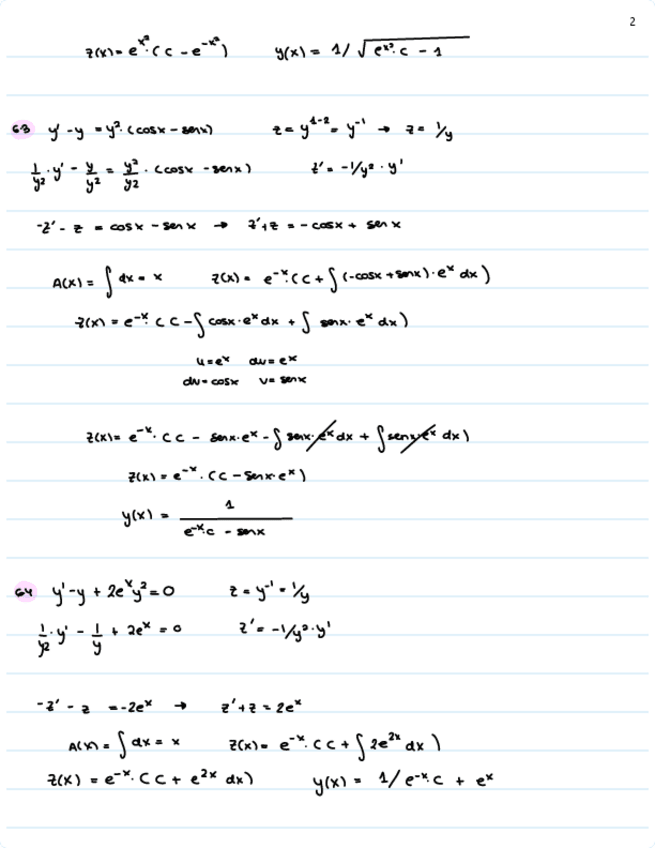 2
z(x) = e^x²·(c - e^-x²) y(x) = 1/√(e^x²·c - 1)
63 y' - y = y²·(cosx - senx) z = y^1-2 = y^-1 → z = 1/y
1/y²·y' - y/y² = y²/y²·(cosx - senx) z' = -1/y²·y'
-z' - z = cosx - senx → z'+z = -cosx + senx
A(x) = ∫dx = x z(x) = e^-x·(c + ∫(-cosx + senx)·e^x dx)
z(x) = e^-x·(c - ∫cosx·e^x dx + ∫senx·e^x dx)
u = e^x du = e^x
dv = cosx v = senx
z(x) = e^-x·(c - senx·e^x - ∫senx·e^x dx + ∫senx·e^x dx)
z(x) = e^-x·(c - senx·e^x)
y(x) = 1/(e^-x·c - senx)
64 y' - y + 2e^x y² = 0 z = y^-1 = 1/y
1/y²·y' - 1/y + 2e^x = 0 z' = -1/y²·y'
-z' - z = -2e^x → z'+z = 2e^x
A(x) = ∫dx = x z(x) = e^-x·(c + ∫2e^2x dx)
z(x) = e^-x·(c + e^2x dx) y(x) = 1/e^-x·c + e^x